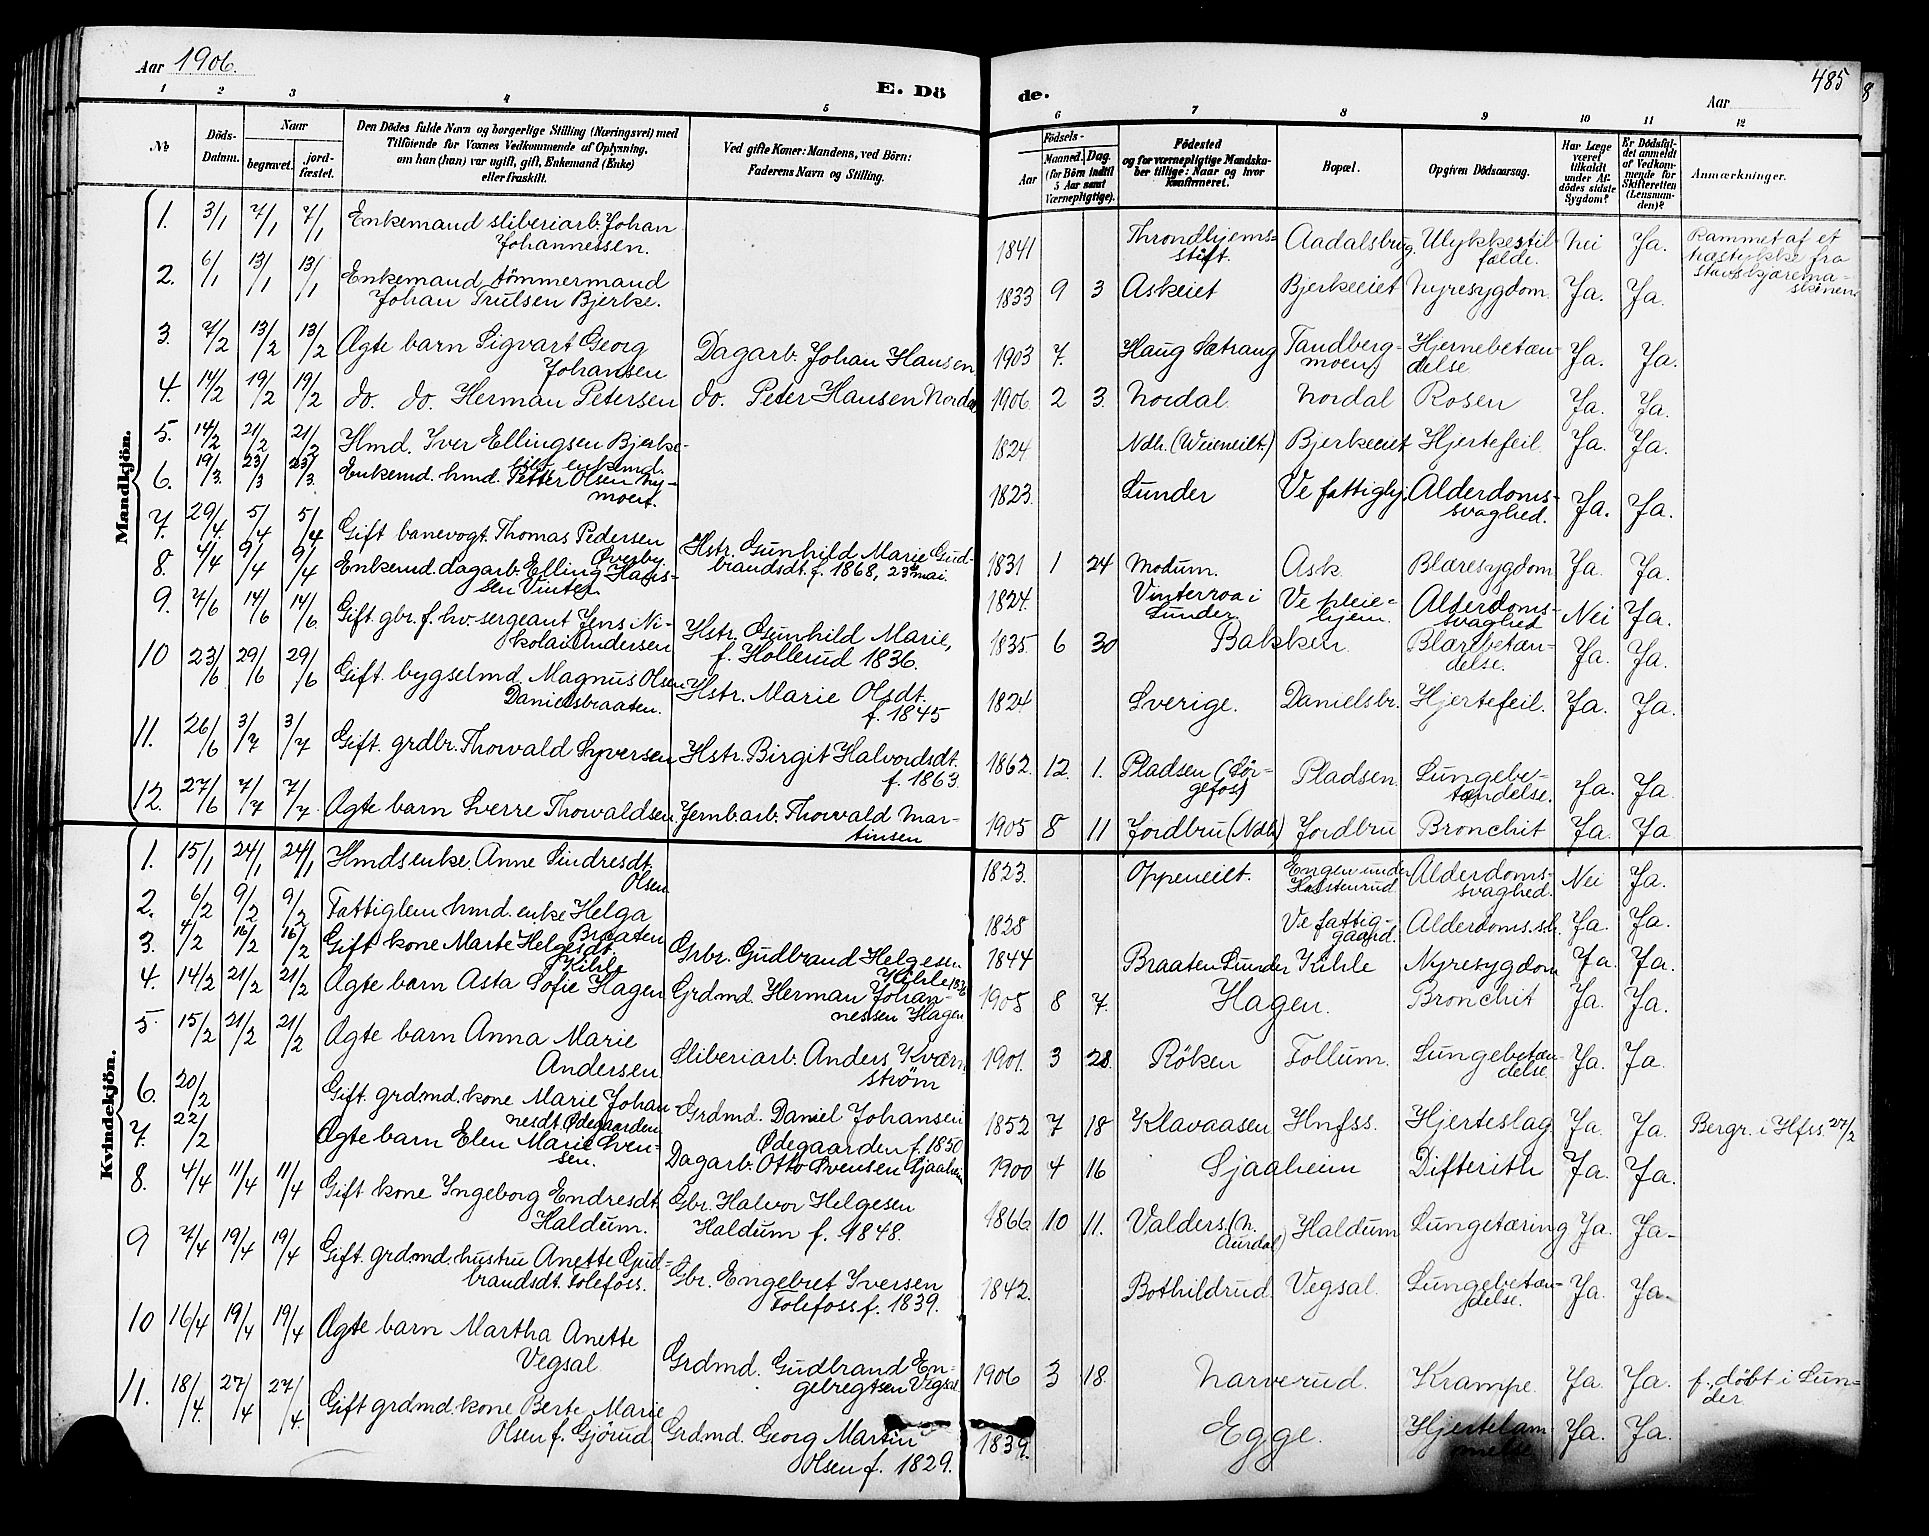 Aar 1906.
E. Dö
de.
485
Aar
1 2 3 4 5
6 7 8 9 10 11 12
No
Döds-Datum.
Naar
begravet.
jord-fæstet.
Den Dödes fulde Navn og borgerlige Stilling (Næringsvei) med
Tilföiende for Voxnes Vedkommende af Oplysning,
om han (hun) var ugift, gift, Enkemand (Enke)
eller fraskilt.
Ved gifte Koner: Mandens, ved Börn:
Faderens Navn og Stilling.
Födsels-
Aar
Maaned. Dag.
(for Börn indtil
5 Aar samt
Værnepligtige).
Födested
og for værnepligtige Mandska-
ber tillige: Naar og hvor
konfirmeret.
Bopæl.
Opgiven Dödsaarsag.
Har Læge
været
tilkaldt
under Af-
dödes sidste
Sygdom?
Er Dödsfal-
det anmeldt
af Vedkom-
mende for
Skifteretten
(Lensman-
den)?
Anmærkninger.
Mandkjön.
1. 3/1 7/1 7/1 Enkemand sliberiarb. Johan
Johannessen. 1841 Throndhjems-
stift. Aadalsbrug. Ulykkestil-
fælde. Nei Ja. Rammet af et
træstykke fra
2. 6/1 13/1 13/1 Enkemand tömmermand
Johan Trulsen Bjerke. 1833 9 3 Askeiet Bjerkeeiet Nyresygdom. Ja. Ja.
3. 7/2 13/2 13/2 Ægte barn Sigvart Georg
Johansen Dagarb. Johan Hansen 1903 7. Haug Sætrang Tandberg-
moen Hjernebetæn-
delse Ja. Ja.
4. 14/2 19/2 19/2 do. do. Herman Petersen do. Peter Hansen Nordal 1906 2 3. Nordal Nordal Rosen Ja. Ja.
5. 14/2 21/2 21/2 Hmd. Iver Ellingsen Bjerke-
eiet, enkemd. 1824 Ndh. (Weieneilt.) Bjerkeeiet Hjertefeil. Ja. Ja.
6. 19/3. 23/3 23/3. Enkemd. hmd. Petter Olsen Ny-
moen. 1823. Lunder Ve fattiglj. Alderdoms-
svaghed. Ja. Ja.
7. 29/4. 5/4 5/4 Gift banevogt. Thomas Pedersen
Øverby Hstr. Gunhild Marie Gud-
brandsdt. f. 1868, 23de mai. 1831 1 24 Modum. Ask. Blæresygdom Ja. Ja.
8. 4/4 9/4 9/4 Enkemd. dagarb. Elling Hans-
sen Vinter 1824. Vinterroa i
Lunder Ve pleie-
hjem. Alderdoms-
svaghed Nei Ja.
9. 7/6 14/6 14/6. Gift gbr. f. hv. sergeant Jens Ni-
kolai Andersen Hstr. Gunhild Marie,
f. Hollerud 1836. 1835 6 30 Bakken. Blærebetæn-
delse. Ja. Ja.
10 23/6 29/6 29/6 Gift. bygselmd. Magnus Olsen
Danielsbraaten. Hstr. Marie Olsdt.
f. 1845 1824 Sverige. Danielsbr. Hjertefeil. Ja. Ja.
11. 26/6 3/7 3/7 Gift. grdbr. Thorvald Syversen Hstr. Birgit Halvordsdt.
f. 1863. 1862. 12. 1. Pladsen (Sör-
gefos) Pladsen. Lungebe-
tændelse. Ja. Ja
12. 27/6 7/7 7/7. Ægte barn Sverre Thorvaldsen Jernb.arb. Thorvald Mar-
tinsen 1905 8 11 Jordbru (Ndh) Jordbru Bronchit Ja. Ja
Kvindekjön.
1. 15/1 24/1 24/1 Hmds enke. Anne Sindresdt.
Olsen 1823. Oppeneilt. Engen under
Halstenrud. Alderdoms-
svaghed. Nei Ja.
2. 6/2 9/2 9/2 Fattiglem hmd. enke Helga
Braaten 1828 Ve fattig-
gaard. Alderdoms.sh. Ja. Ja.
3. 4/2 16/2 16/2 Gift kone Marte Helgesdt.
Kihle Grbr. Gudbrand Helgesen
Kihle 1844 Braaten Lunder Kihle Nyresygdom Ja. Ja.
4. 14/2 21/2 21/2 Ægte barn Asta Sofie Hagen Grdmd. Herman Johan-
nessen Hagen 1905 8 7. Hagen. Bronchit Ja. Ja.
5. 15/2 21/2 21/2 Ægte barn Anna Marie
Andersen Sliberiarb. Anders Kværn
ström 1901. 3 28. Röken Follum. Lungebetæn-
delse. Ja. Ja
6. 20/2 Gift grdmd. kone Marie Johan-
nesdt. Ødegaarden Grdmd. Daniel Johansen
Ødegaarden f. 1850 1852 7 18 Klavaasen Hnfss. Hjerteslag Ja. Ja. Bergr. i Hfss. 27/2
7. 22/2 Ægte barn Elen Marie Sven-
sen. Dagarb. Otto Svensen Sjaaheim 1900 4 16 Sjaaheim Difterith Ja. Ja.
8. 4/4 11/4 11/4 Gift kone Ingeborg Endresdt.
Haldum. Gbr. Halvor Helgesen
Haldum f. 1848. 1866 10 11. Valders. (N.
Aurdal) Haldum Lungetæring Ja. Ja-
9 7/4 19/4 19/4 Gift. grdmd. hustru Anette Gud-
brandsdt. Tolefoss. Gbr. Engebret Iversen
Tolefoss f. 1839. 1842. Bothildrud. Vegsal. Lungebetæn-
delse. Ja. Ja-
10 16/4 19/4 19/4 Ægte barn Martha Anette
Vegsal Grdmd. Gudbrand En-
gebregtsen Vegsal. 1906 3 18. Narverud. Krampe. Ja. Ja. f. döbt i Lun-
der.
11. 18/4. 27/4 27/4. Gift grdmd. kone Berte Marie
Olsen f. Gjörud. Grdmd. Georg Martin
Olsen f. 1829. 1839. Egge. Hjertelam
melse Ja. Ja.